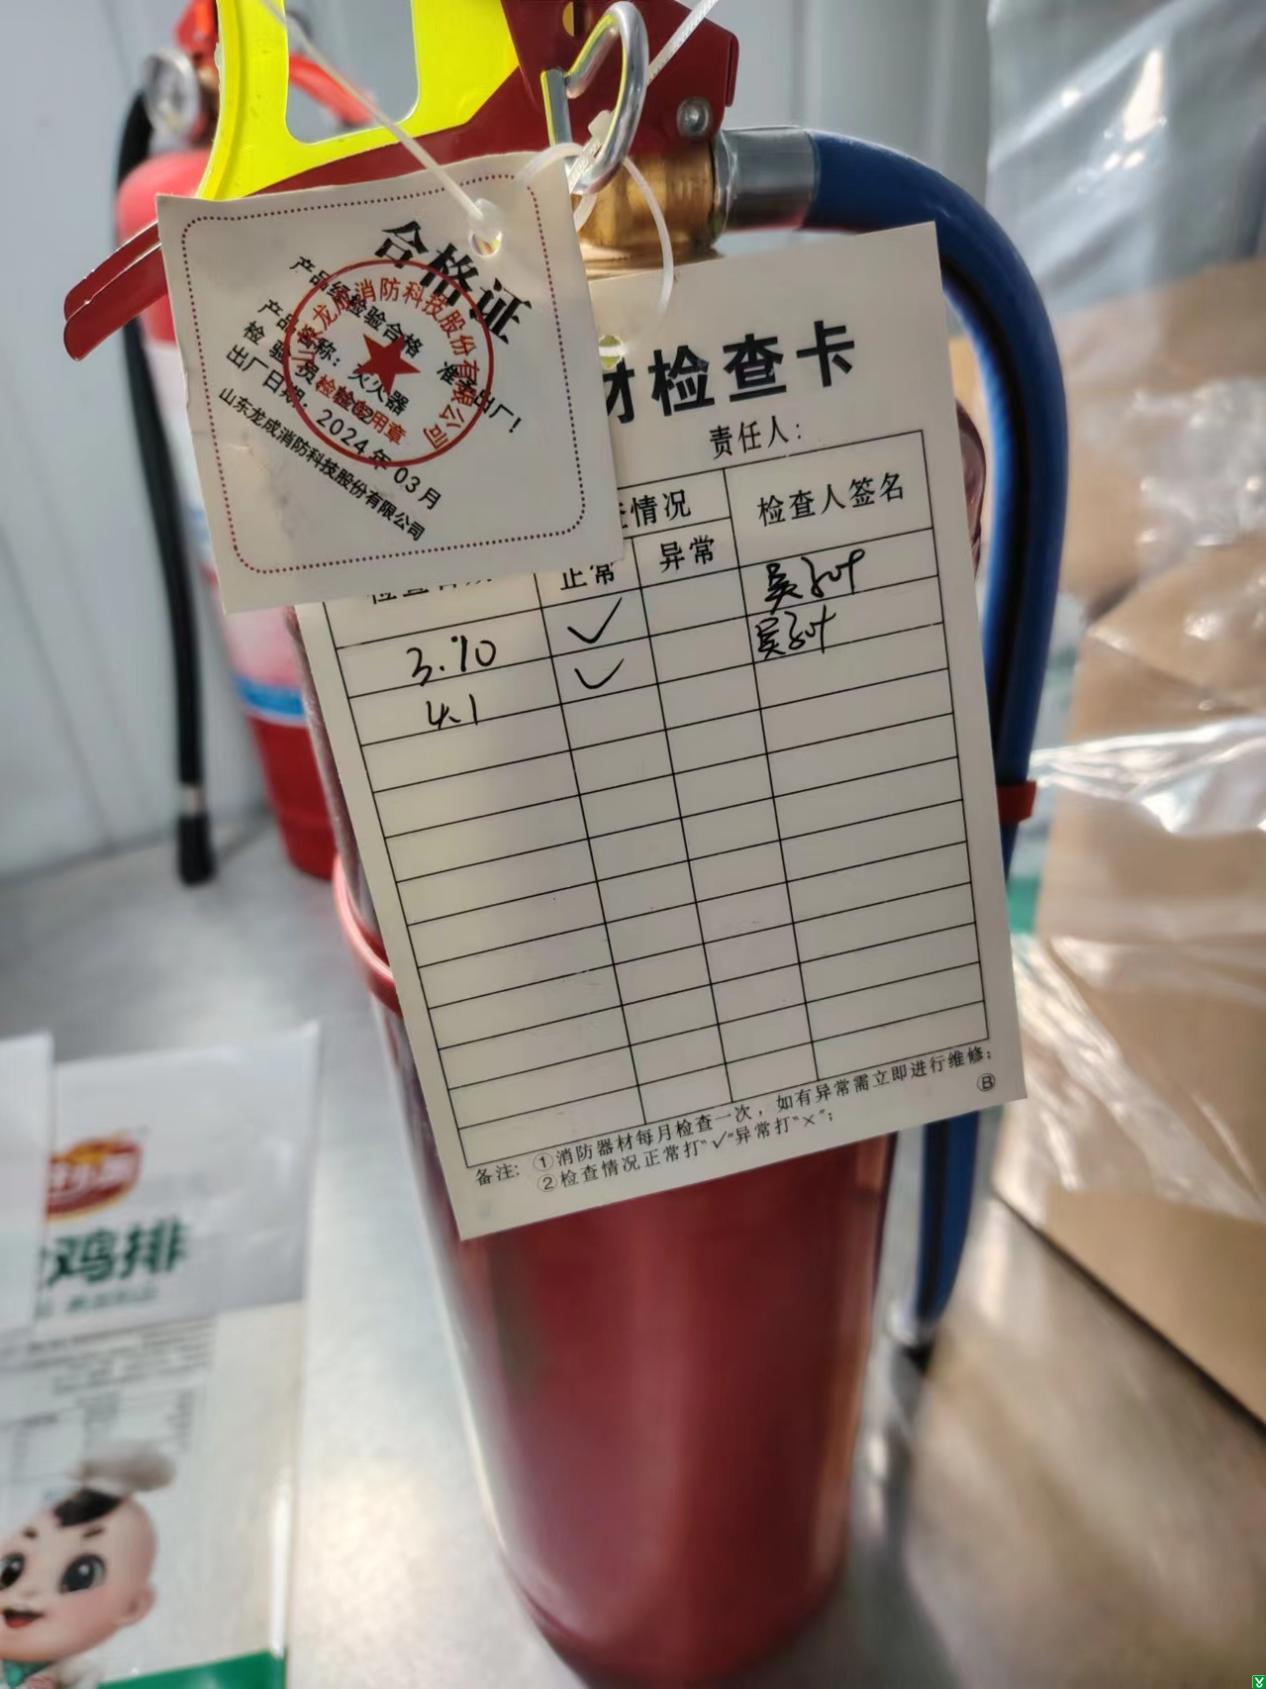 合格证
产品经检验合格 准予出厂!
产品名称: 灭火器
检验员:
出厂日期: 2024年03月
山东龙成消防科技股份有限公司
龙成消防科技股份有限公司
检验专用章
材检查卡
责任人:
查情况 检查人签名
正常 异常
3.10 ✓ 吴
4.1 ✓ 吴
备注: ①消防器材每月检查一次,如有异常需立即进行维修;
②检查情况正常打"✓"异常打"×";
B
鸡排